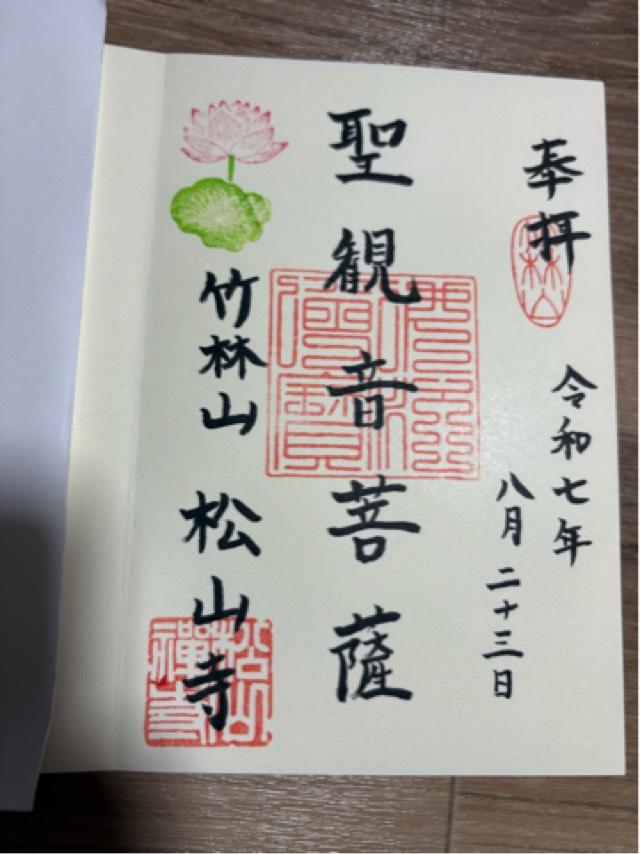 奉拝
令和七年
八月二十三日
聖観音菩薩
竹林山 松山寺
佛法僧寳
松山禅寺